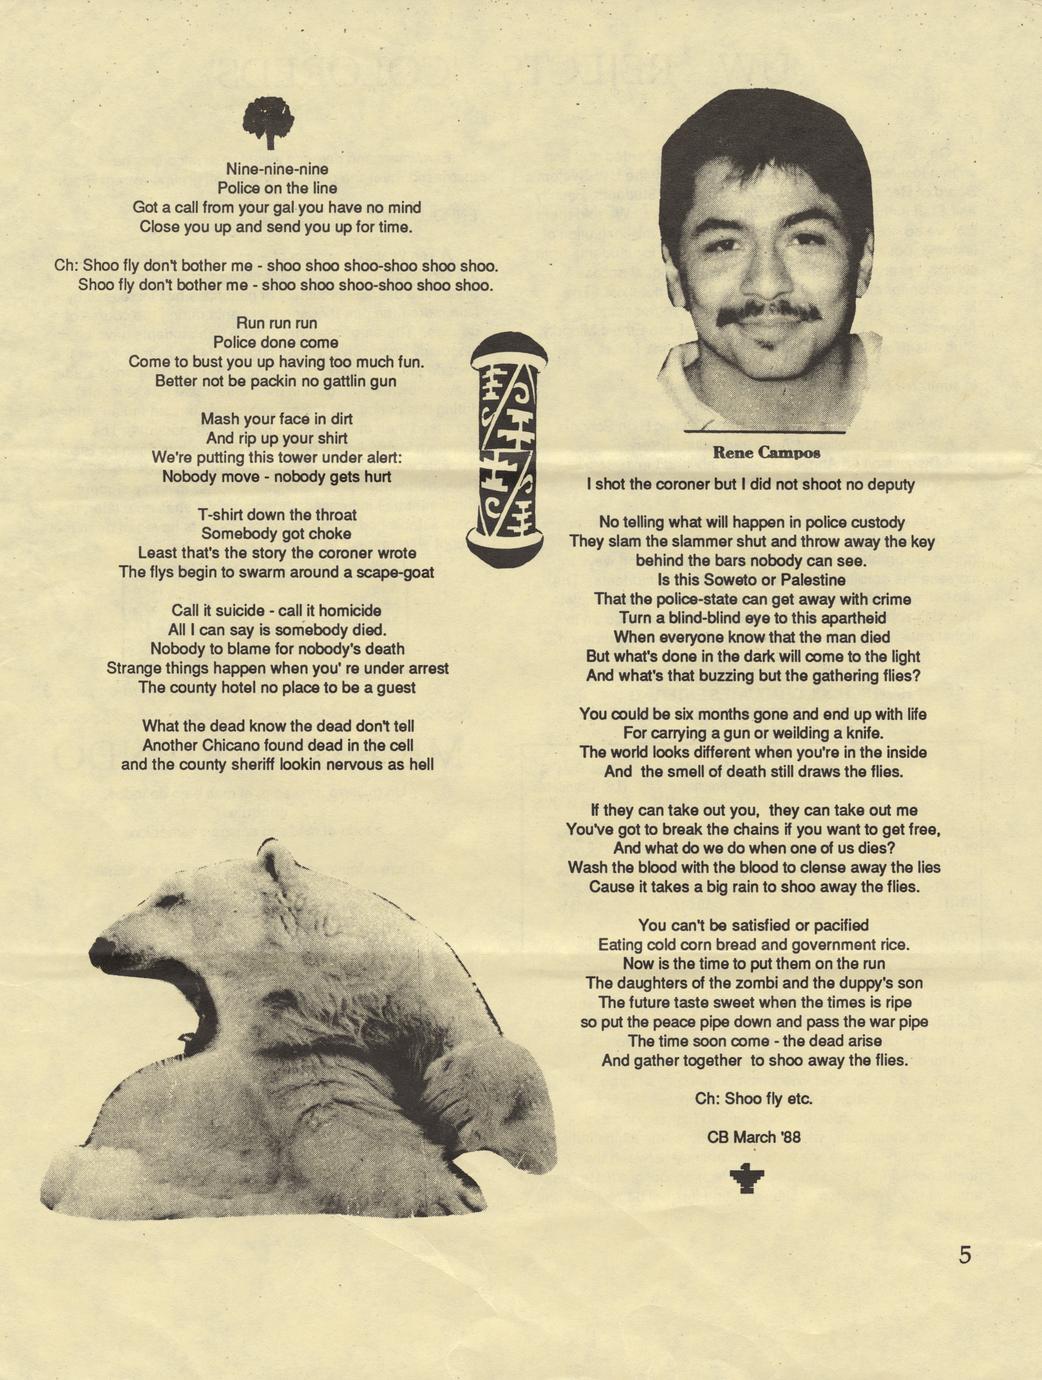 Nine-nine-nine
Police on the line
Got a call from your gal you have no mind
Close you up and send you up for time.
Ch: Shoo fly don't bother me - shoo shoo shoo-shoo shoo shoo.
Shoo fly don't bother me - shoo shoo shoo-shoo shoo shoo.
Run run run
Police done come
Come to bust you up having too much fun.
Better not be packin no gattlin gun
Mash your face in dirt
And rip up your shirt
We're putting this tower under alert:
Nobody move - nobody gets hurt
T-shirt down the throat
Somebody got choke
Least that's the story the coroner wrote
The flys begin to swarm around a scape-goat
Call it suicide - call it homicide
All I can say is somebody died.
Nobody to blame for nobody's death
Strange things happen when you' re under arrest
The county hotel no place to be a guest
What the dead know the dead don't tell
Another Chicano found dead in the cell
and the county sheriff lookin nervous as hell
Rene Campos
I shot the coroner but I did not shoot no deputy
No telling what will happen in police custody
They slam the slammer shut and throw away the key
behind the bars nobody can see.
Is this Soweto or Palestine
That the police-state can get away with crime
Turn a blind-blind eye to this apartheid
When everyone know that the man died
But what's done in the dark will come to the light
And what's that buzzing but the gathering flies?
You could be six months gone and end up with life
For carrying a gun or weilding a knife.
The world looks different when you're in the inside
And the smell of death still draws the flies.
If they can take out you, they can take out me
You've got to break the chains if you want to get free,
And what do we do when one of us dies?
Wash the blood with the blood to clense away the lies
Cause it takes a big rain to shoo away the flies.
You can't be satisfied or pacified
Eating cold corn bread and government rice.
Now is the time to put them on the run
The daughters of the zombi and the duppy's son
The future taste sweet when the times is ripe
so put the peace pipe down and pass the war pipe
The time soon come - the dead arise
And gather together to shoo away the flies.
Ch: Shoo fly etc.
CB March '88
5